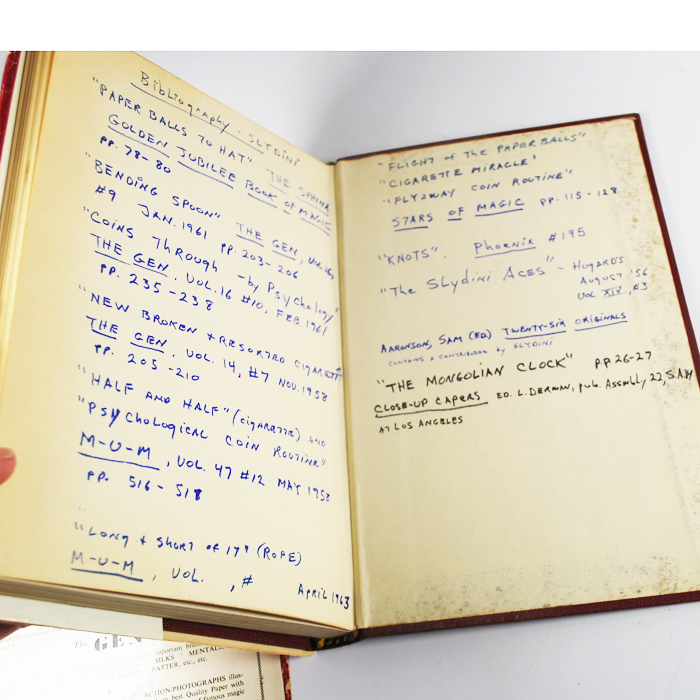 Bibliography - SLYDINI
"PAPER BALLS TO HAT" THE SPHINX
GOLDEN JUBILEE BOOK OF MAGIC
PP. 78-80
"BENDING SPOON" THE GEN, VOL. 16
#9 JAN. 1961 PP. 203-206
"COINS THROUGH - by PSYCHOLOGY"
THE GEN. VOL. 16 #10. FEB. 1961
PP. 235-238
"NEW BROKEN + RESORTED CIGARETTE"
THE GEN. VOL. 14, #7 NOV. 1958
PP. 205-210
"HALF AND HALF" (CIGARETTE) AND
"PSYCHOLOGICAL COIN ROUTINE"
M-U-M, VOL. 47 #12 MAY 1958
PP. 516-518
"LONG + SHORT OF IT" (ROPE)
M-U-M, VOL. , # APRIL 1963
"FLIGHT OF THE PAPER BALLS"
"CIGARETTE MIRACLE"
"FLYAWAY COIN ROUTINE"
STARS OF MAGIC PP. 115-128
"KNOTS". Phoenix #195
"The Slydini Aces" - HUGARD'S
AUGUST '56
VOL XIV, #3
AARONSON, SAM (ED) TWENTY-SIX ORIGINALS
CONTAINS A CONTRIBUTION by SLYDINI
"THE MONGOLIAN CLOCK" PP. 26-27
CLOSE-UP CAPERS ED. L. DERMAN, pub. Assembly 22, S.A.M
AT LOS ANGELES
The GEN
important
SILKS - MENTAL
PATTER, etc., etc.
ACTION-PHOTOGRAPHS illus-
on best Quality Paper with
of famous magic